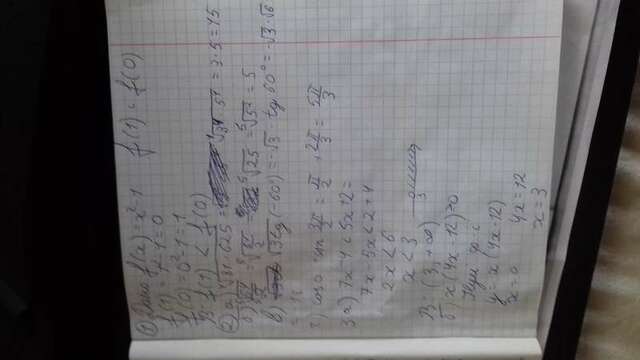 ① Дано f(x) = x² - 1 f(1) и f(0)
f(1) = 1 - 1 = 0
f(0) = 0² - 1 = 1
В: f(1) < f(0)
2) а) ⁴√81·625 = ⁴√3⁴·5⁴ = 3·5 = 15
= ⁵√25 = ⁵√5² = 5
в) √3 tg(-60°) = -√3 · tg 60° = -√3 · √6
3π/2 = π/2 + 2π/3 = 5π/3
3 а) 7x - 4 < 5x + 2 =
7x - 5x < 2 + 4
2x < 6
x < 3
3
В: (3, +∞)
б) x(4x - 12) > 0
Нули ф-і
y = x(4x - 12)
x = 0 4x = 12
x = 3